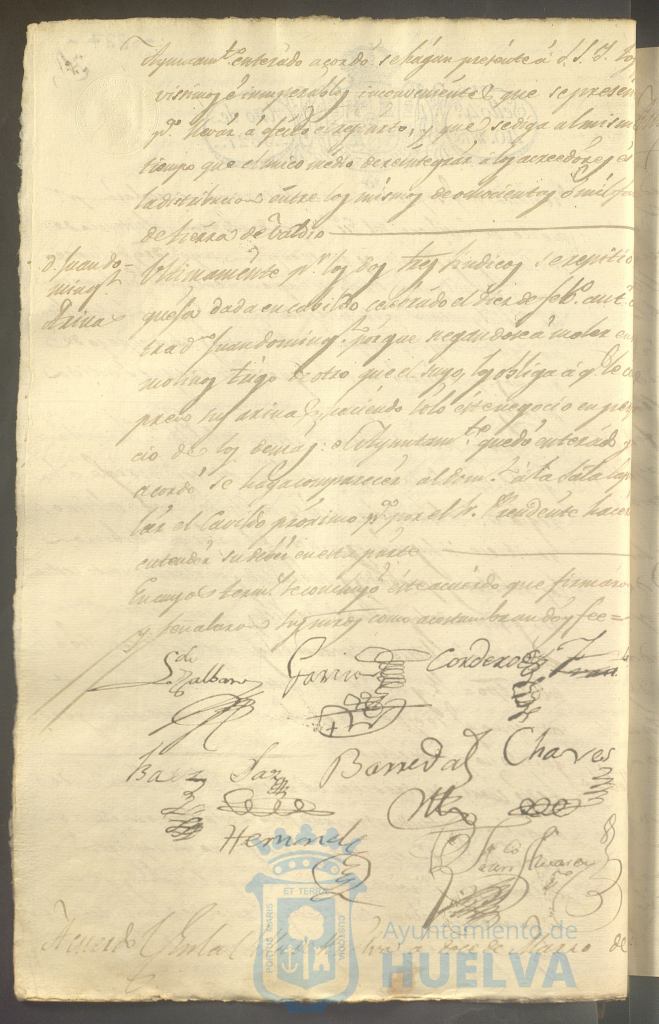 Ayuntam.to enterado acordó se hagan presente á S.S.Y. los
é insuperables inconvenientes que se presen
p.a llevar á efecto el reparto, y que se diga al mism
tiempo que el unico medio de reintegrar á los acreedores es
la distribucion entre los mismos de ochocientas ó mil fa
de tierra de Valdio
D. Juan Do-
ming.z
Arina
Ultimamente p.r los dos Sindicos se repitio
quesa dada en cavildo celebrado el diez de Feb.o
tra d.n Juan Doming.z porque negandose á moler en
molinos trigo de otro que el suyo, los obliga á q.e le co
precio su arina, haciendo solo este negocio en perjui
cio de los demas: el Ayuntam.to quedó enterado y
acordó se haga comparecer al Dom.z á esta Sala Capitu
lar el Cavildo proximo p.a por el S.r Presidente hacer
entender su deber en esta parte
En cuyos term.s se concluyó este acuerdo que firmaron
y señalaron sus mrds como acostumbran doy fee =
Garrido
Cordero
Baez
Saz
Barreda
Chaves
Hernand
Acuerdo
En la Villa de Huelva á doce de Marzo de
PORTUS MARIS
ET TERRÆ
CUSTODIA
Ayuntamiento de
HUELVA